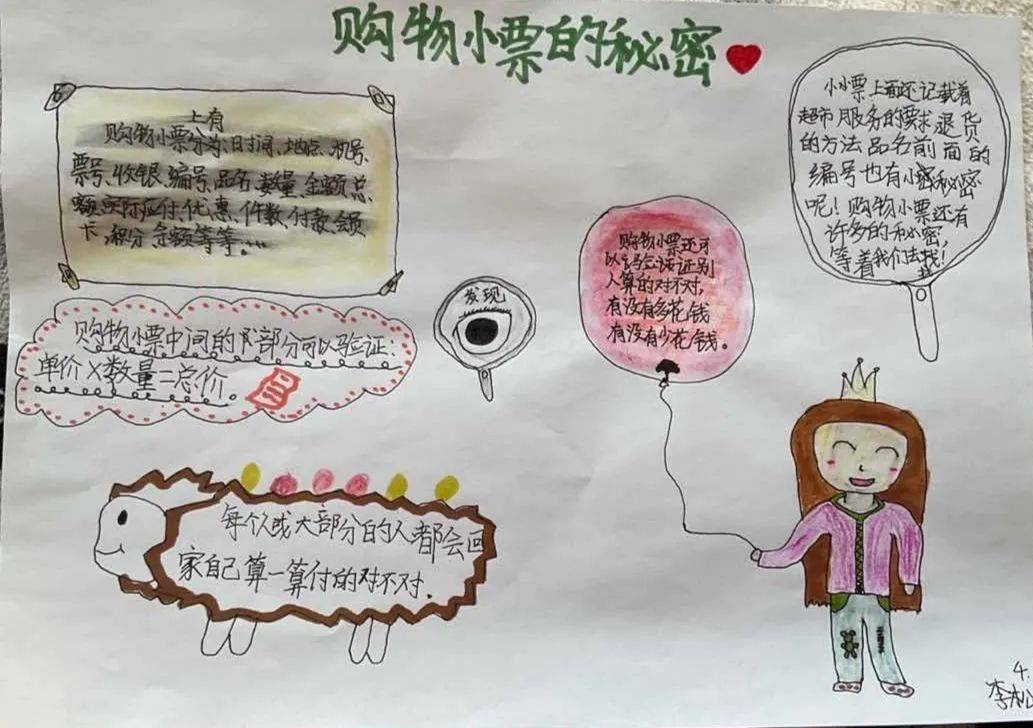 购物小票的秘密
上有
购物小票分为:日时间、地点、机号、
票号、收银、编号、品名、数量、金额、总
额、实际应付、优惠、件数、付款、会员
卡、积分、余额等等。…
购物小票中间的下部分可以验证:
单价×数量=总价。
发现
购物小票还可
以验证别
人算的对不对,
有没有多花钱
有没有少花钱。
小票上面还记载着
超市服务的要求退货
的方法品名前面的
编号也有小秘密
呢!购物小票还有
许多的秘密,
等着我们去找!
每个人或大部分的人都会回
家自己算一算付的对不对.
4.
李